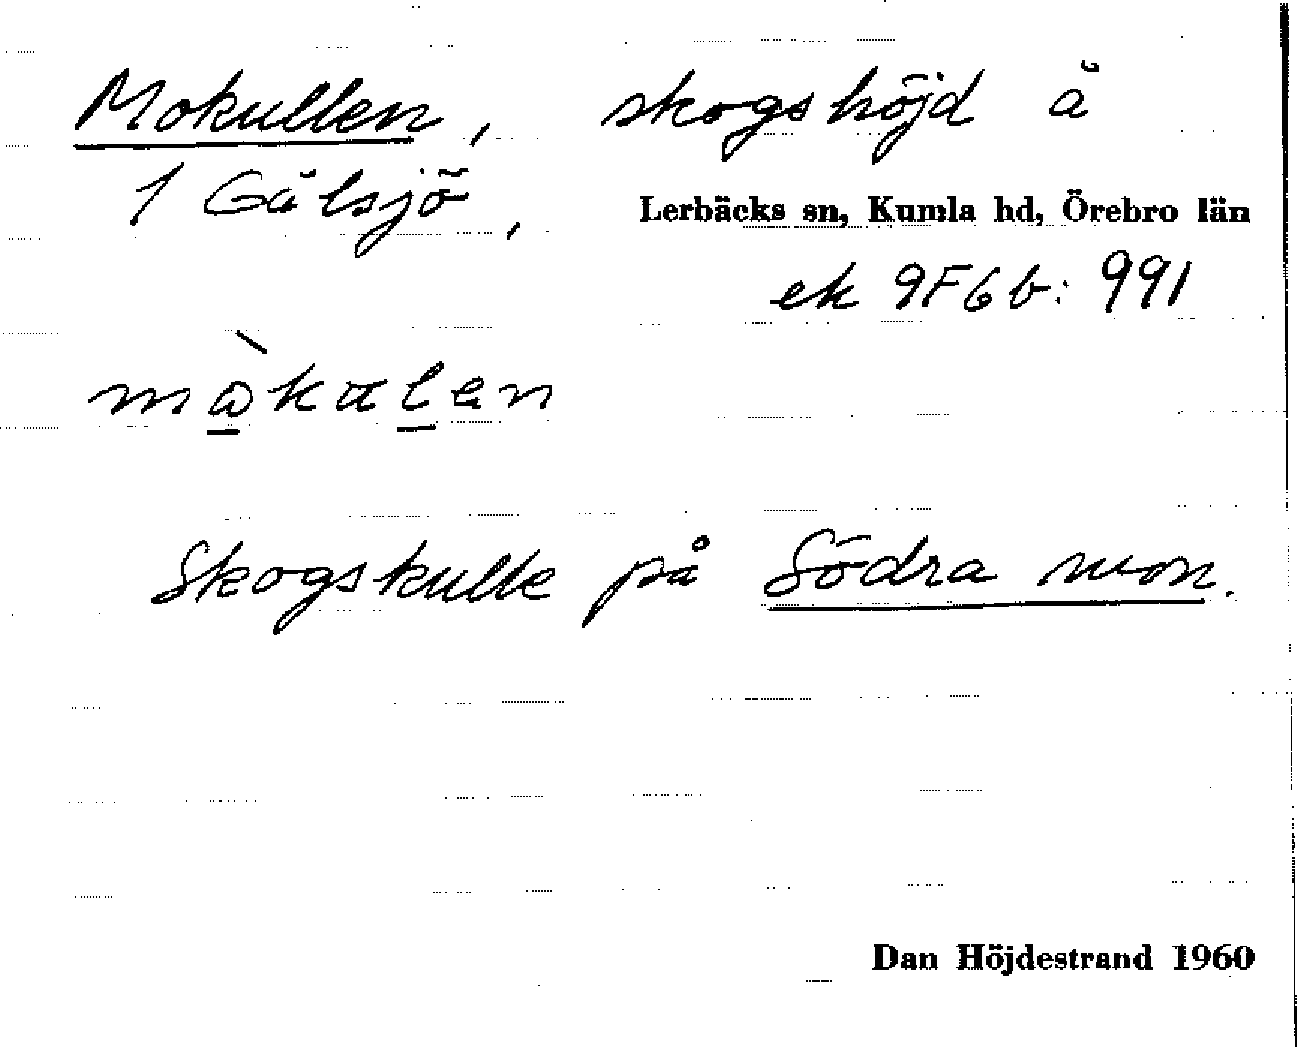 Mokullen, skogshöjd å
1 Gålsjö, Lerbäcks sn, Kumla hd, Örebro län
ek 9F6b: 991
mò̱kuḻen
Skogskulle på Södra mon.
Dan Höjdestrand 1960